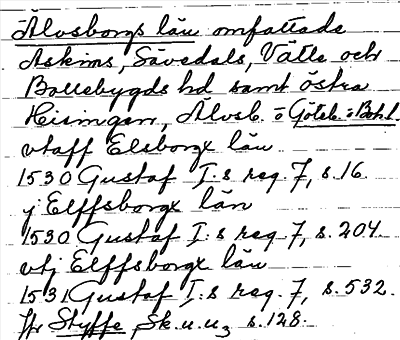 Älvsborgs län omfattade
Askims, Sävedals, Vättle och
Bollebygds hd samt östra
Hisingen, Älvsb. o Göteb. o Boh. l.
vtaff Elsborgx län
1530 Gustaf I:s reg. 7, s. 16.
j Elffsborgx län
1530 Gustaf I:s reg. 7, s. 204.
vtj Elffsborgx län
1531 Gustaf I:s reg. 7, s. 532.
Jfr Styffe, Sk. u. u3 s. 128.